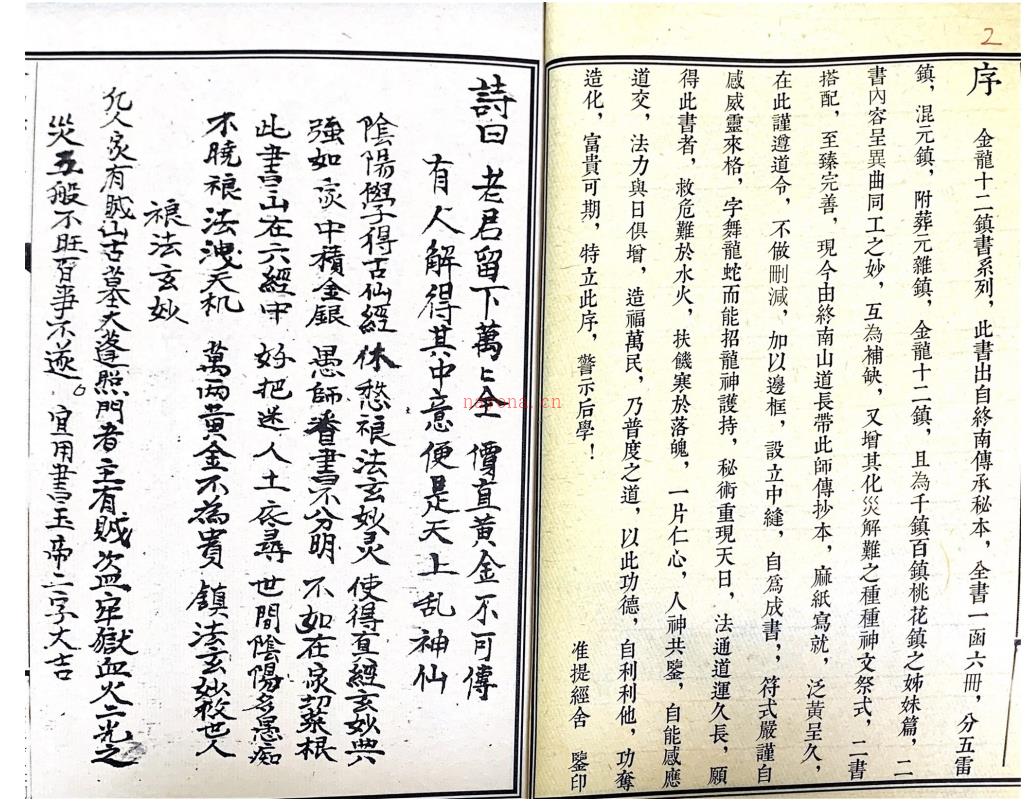 2
序
金龍十二鎮書系列，此書出自終南傳承秘本，全書一函六冊，分五雷
鎮，混元鎮，附葬元雜鎮，金龍十二鎮，且為千鎮百鎮桃花鎮之姊妹篇，二
書內容呈異曲同工之妙，互為補缺，又增其化災解難之種種神文祭式，二書
搭配，至臻完善，現今由終南山道長帶此師傳抄本，麻紙寫就，泛黃呈久，
在此謹遵道令，不做刪減，加以邊框，設立中縫，自爲成書，，符式嚴謹自
感威靈來格，字舞龍蛇而能招龍神護持，秘術重現天日，法通道運久長，願
得此書者，救危難於水火，扶饑寒於落魄，一片仁心，人神共鑒，自能感應
道交，法力與日俱增，造福萬民，乃普度之道，以此功德，自利利他，功奪
造化，富貴可期，特立此序，警示后學！
准提經舍 鑒印
詩曰 老君留下萬上 價直黃金不可傳
有人解得其中意便是天上乱神仙
陰陽學子得古仙經休愁禳法玄妙灵使得直經玄妙典
強如家中積金銀 愚師看書不分明 不如在家契菜根
此書山在六經中 好把迷人土底尋 世間陰陽多愚痴
不曉禳法洩天机 萬両黃金不為貴 鎮法玄妙救世人
禳法玄妙
凡人家有賊山古墓天蓬照門者主有賊盜牢獄血火之光之
災五般不旺百事不遂。宜用書玉帝二字大吉
nayona.cn